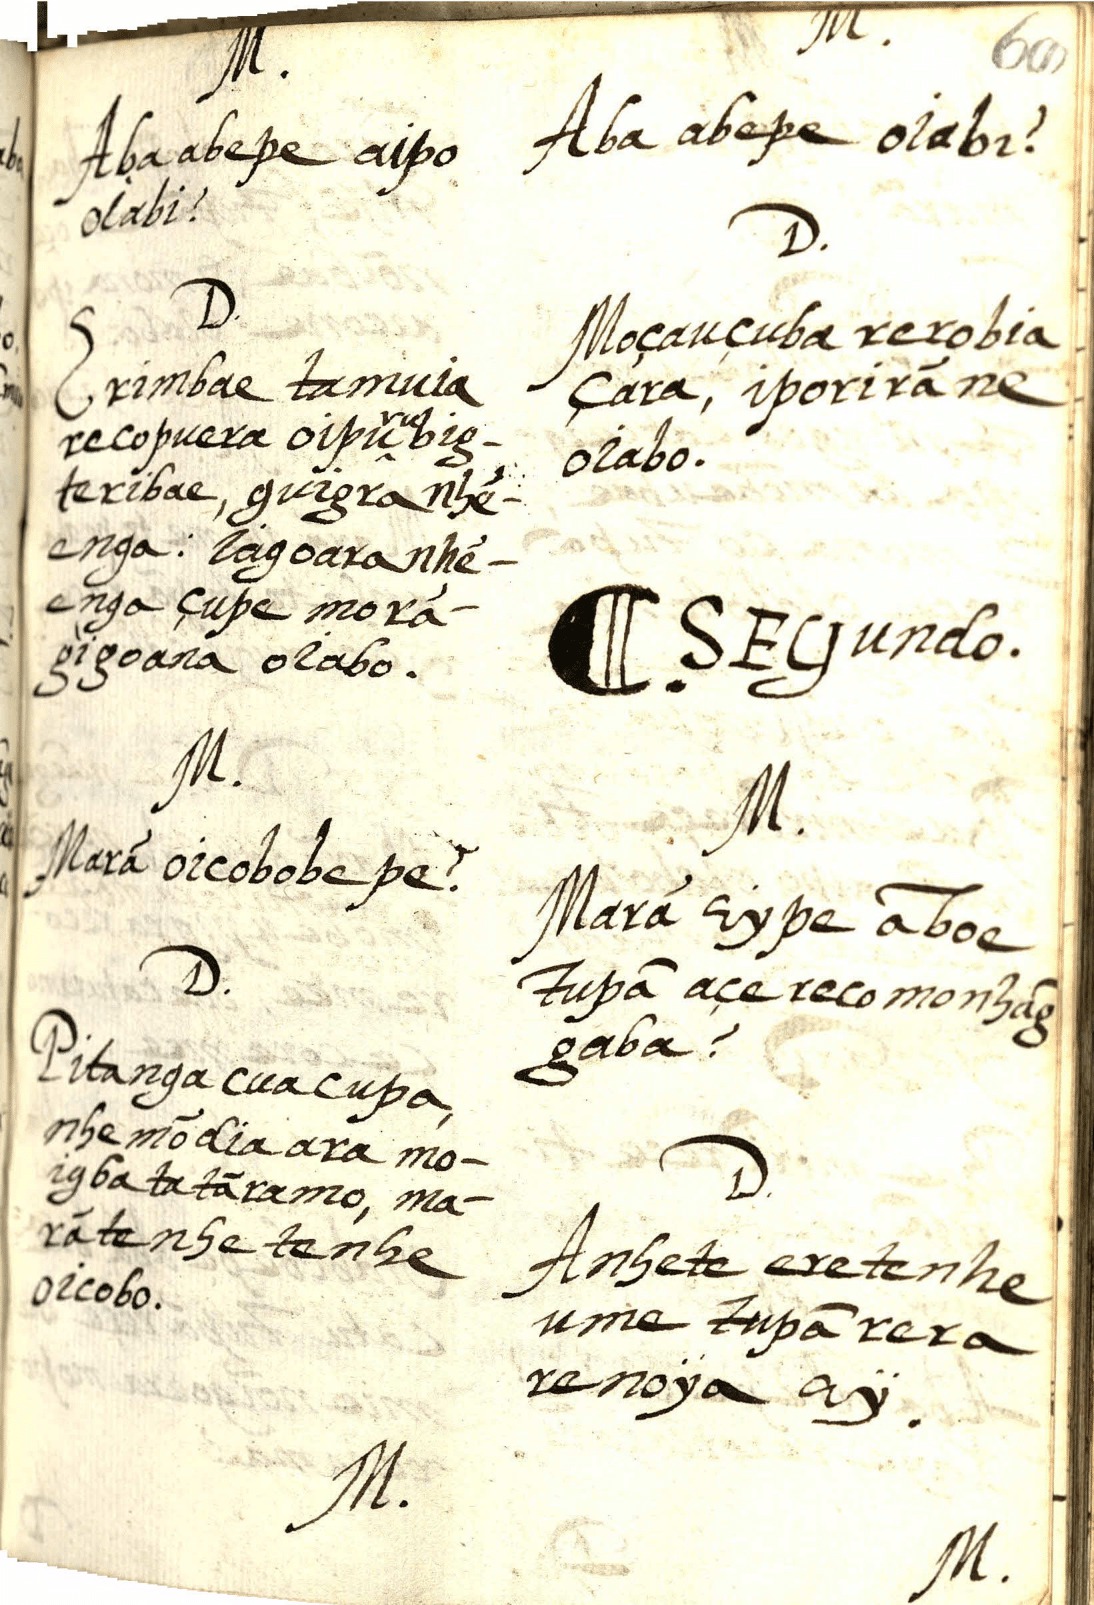 M.
Aba abepe aipo
oiabi?
D.
Erimbae tamuia
recopuera oipu rubig-
teribae, guigra nhé-
enga: iagoara nhé-
enga çupe morá-
gigoana oiabo.
M.
Mará oicobobe pe?
D.
Pitanga cuacupa,
nhemõdia ara mo-
igba tatãramo, ma-
rãte nhe tenhe
oicobo.
M.
60
M.
Aba abepe oiabi?
D.
Moçauçuba rerobia
çara, iporirã ne
oiabo.
SEGundo.
M.
Mará ype ãboe
tupã açe reco monhãg
gaba?
D.
Anhete eretenhe
ume tupã rera
renoÿa
M.